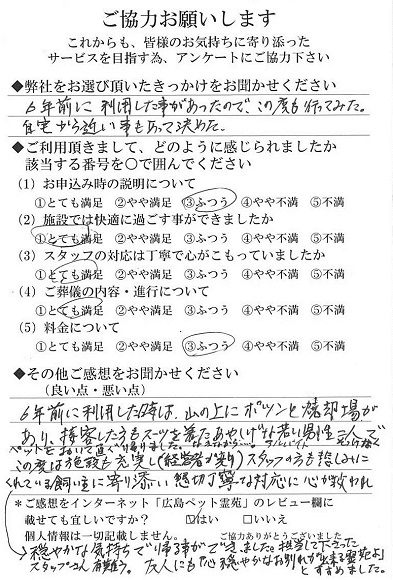 ご協力お願いします
これからも、皆様のお気持ちに寄り添った
サービスを目指す為、アンケートにご協力下さい
◆弊社をお選び頂いたきっかけをお聞かせください
6年前に利用した事があったので、この度も行ってみた。
自宅から近い事もあって決めた。
◆ご利用頂きまして、どのように感じられましたか
該当する番号を○で囲んでください
(1) お申込み時の説明について
①とても満足 ②やや満足 ③ふつう ④やや不満 ⑤不満
(2) 施設では快適に過ごす事ができましたか
①とても満足 ②やや満足 ③ふつう ④やや不満 ⑤不満
(3) スタッフの対応は丁寧で心がこもっていましたか
①とても満足 ②やや満足 ③ふつう ④やや不満 ⑤不満
(4) ご葬儀の内容・進行について
①とても満足 ②やや満足 ③ふつう ④やや不満 ⑤不満
(5) 料金について
①とても満足 ②やや満足 ③ふつう ④やや不満 ⑤不満
◆その他ご感想をお聞かせください
(良い点・悪い点)
6年前に利用した時は、山の上にポツンと焼却場が
あり、接客した方もスーツを着たあやしげな若い男性二人で
ペットをおいて直ぐ帰りました。
この度は施設も充実し(経営者が変り)スタッフの方も悲しみに
くれている飼い主に寄り添い懇切丁寧な対応に心が救われ
*ご感想をインターネット「広島ペット霊苑」のレビュー欄に
載せても宜しいですか? ☑はい □いいえ
個人情報は一切記載しません。 ご協力ありがとうございました
穏やかな気持ちで帰る事ができました。担当して下さった
スタッフさん有難う。友人にも「心穏やかなお別れが出来る霊苑よ」
とすすめました。